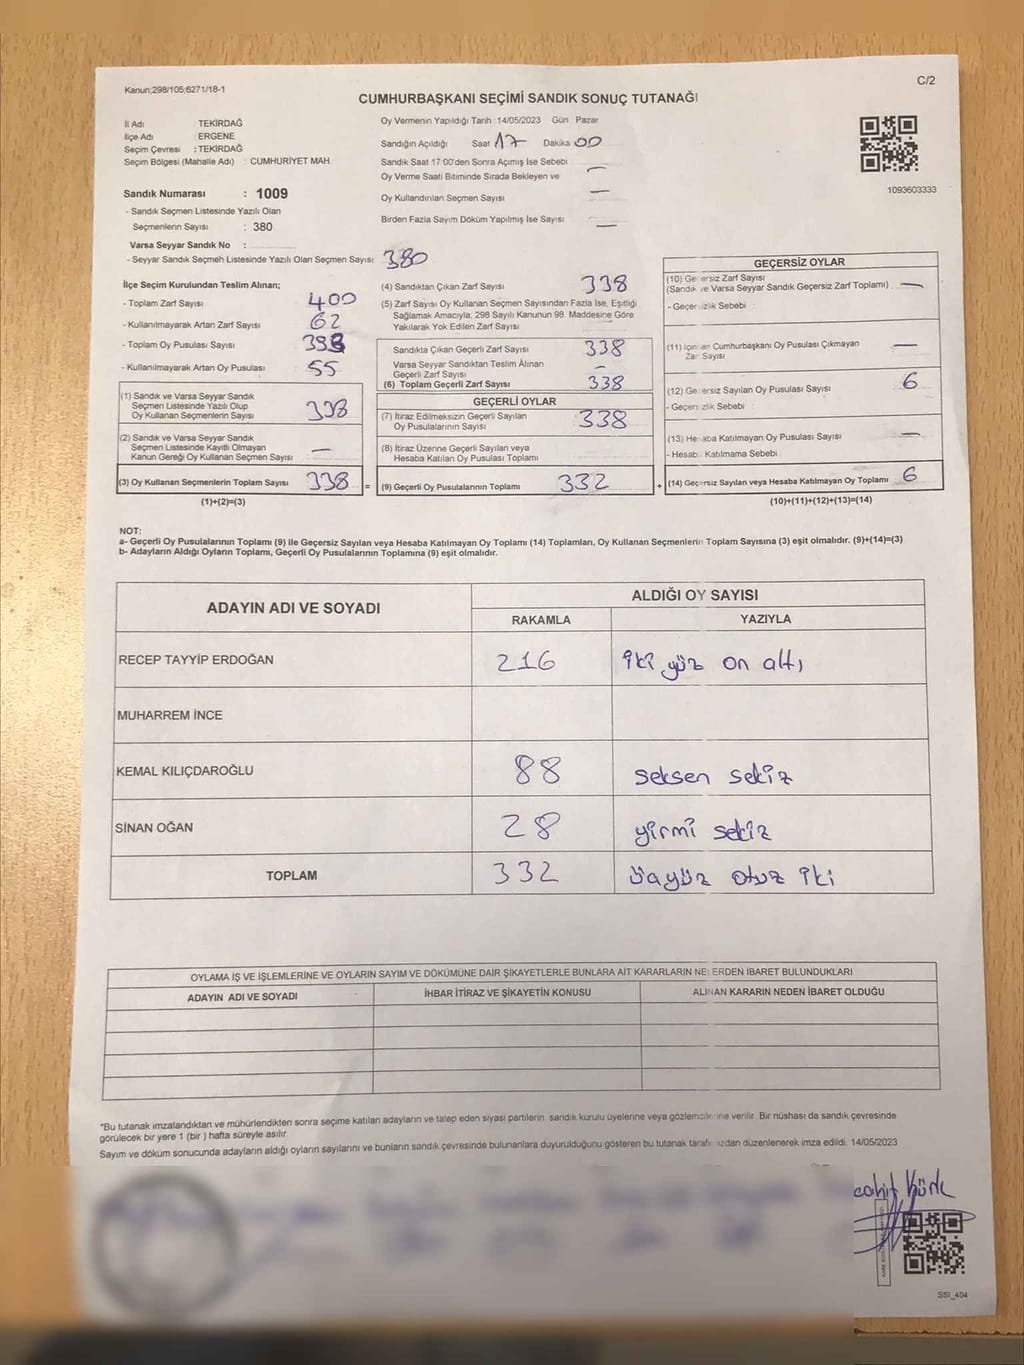 Kanun;298/105;6271/18-1
C/2
CUMHURBAŞKANI SEÇİMİ SANDIK SONUÇ TUTANAĞI
İl Adı : TEKİRDAĞ
İlçe Adı : ERGENE
Seçim Çevresi : TEKİRDAĞ
Seçim Bölgesi (Mahalle Adı) : CUMHURİYET MAH.
Sandık Numarası : 1009
- Sandık Seçmen Listesinde Yazılı Olan
Seçmenlerin Sayısı : 380
Varsa Seyyar Sandık No :
- Seyyar Sandık Seçmen Listesinde Yazılı Olan Seçmen Sayısı 380
Oy Vermenin Yapıldığı Tarih 14/05/2023 Gün Pazar
Sandığın Açıldığı Saat 17 Dakika 00
Sandık Saat 17:00'den Sonra Açımış İse Sebebi —
Oy Verme Saati Bitiminde Sırada Bekleyen ve
Oy Kullandırılan Seçmen Sayısı —
Birden Fazla Sayım Döküm Yapılmış İse Sayısı —
1093603333
İlçe Seçim Kurulundan Teslim Alınan;
- Toplam Zarf Sayısı 400
- Kullanılmayarak Artan Zarf Sayısı 62
- Toplam Oy Pusulası Sayısı 393
- Kullanılmayarak Artan Oy Pusulası 55
(1) Sandık ve Varsa Seyyar Sandık
Seçmen Listesinde Yazılı Olup
Oy Kullanan Seçmenlerin Sayısı 338
(2) Sandık ve Varsa Seyyar Sandık
Seçmen Listesinde Kayıtlı Olmayan
Kanun Gereği Oy Kullanan Seçmen Sayısı —
(3) Oy Kullanan Seçmenlerin Toplam Sayısı 338 =
(1)+(2)=(3)
(4) Sandıktan Çıkan Zarf Sayısı 338
(5) Zarf Sayısı Oy Kullanan Seçmen Sayısından Fazla İse, Eşitliği
Sağlamak Amacıyla; 298 Sayılı Kanunun 98. Maddesine Göre
Yakılarak Yok Edilen Zarf Sayısı
Sandıkta Çıkan Geçerli Zarf Sayısı 338
Varsa Seyyar Sandıktan Teslim Alınan
Geçerli Zarf Sayısı —
(6) Toplam Geçerli Zarf Sayısı 338
GEÇERLİ OYLAR
(7) İtiraz Edilmeksizin Geçerli Sayılan
Oy Pusulalarının Sayısı 338
(8) İtiraz Üzerine Geçerli Sayılan veya
Hesaba Katılan Oy Pusulası Toplamı
(9) Geçerli Oy Pusulalarının Toplamı 332 +
GEÇERSİZ OYLAR
(10) Geçersiz Zarf Sayısı
(Sandık ve Varsa Seyyar Sandık Geçersiz Zarf Toplamı) —
- Geçersizlik Sebebi :
(11) İçinden Cumhurbaşkanı Oy Pusulası Çıkmayan
Zarf Sayısı —
(12) Geçersiz Sayılan Oy Pusulası Sayısı 6
- Geçersizlik Sebebi :
(13) Hesaba Katılmayan Oy Pusulası Sayısı —
- Hesaba Katılmama Sebebi
(14) Geçersiz Sayılan veya Hesaba Katılmayan Oy Toplamı 6
(10)+(11)+(12)+(13)=(14)
NOT:
a- Geçerli Oy Pusulalarının Toplamı (9) ile Geçersiz Sayılan veya Hesaba Katılmayan Oy Toplamı (14) Toplamları, Oy Kullanan Seçmenlerin Toplam Sayısına (3) eşit olmalıdır. (9)+(14)=(3)
b- Adayların Aldığı Oyların Toplamı, Geçerli Oy Pusulalarının Toplamına (9) eşit olmalıdır.
ADAYIN ADI VE SOYADI
ALDIĞI OY SAYISI
RAKAMLA YAZIYLA
RECEP TAYYİP ERDOĞAN 216 iki yüz on altı
MUHARREM İNCE
KEMAL KILIÇDAROĞLU 88 seksen sekiz
SİNAN OĞAN 28 yirmi sekiz
TOPLAM 332 üçyüz otuz iki
OYLAMA İŞ VE İŞLEMLERİNE VE OYLARIN SAYIM VE DÖKÜMÜNE DAİR ŞİKAYETLERLE BUNLARA AİT KARARLARIN NELERDEN İBARET BULUNDUKLARI
ADAYIN ADI VE SOYADI İHBAR İTİRAZ VE ŞİKAYETİN KONUSU ALINAN KARARIN NEDEN İBARET OLDUĞU
*Bu tutanak imzalandıktan ve mühürlendikten sonra seçime katılan adayların ve talep eden siyasi partilerin sandık kurulu üyelerine veya gözlemcilerine verilir. Bir nüshası da sandık çevresinde
görülecek bir yere 1 (bir ) hafta süreyle asılır.
Sayım ve döküm sonucunda adayların aldığı oyların sayılarını ve bunların sandık çevresinde bulunanlara duyurulduğunu gösteren bu tutanak tarafımızdan düzenlenerek imza edildi. 14/05/2023
cahit
SSI_404